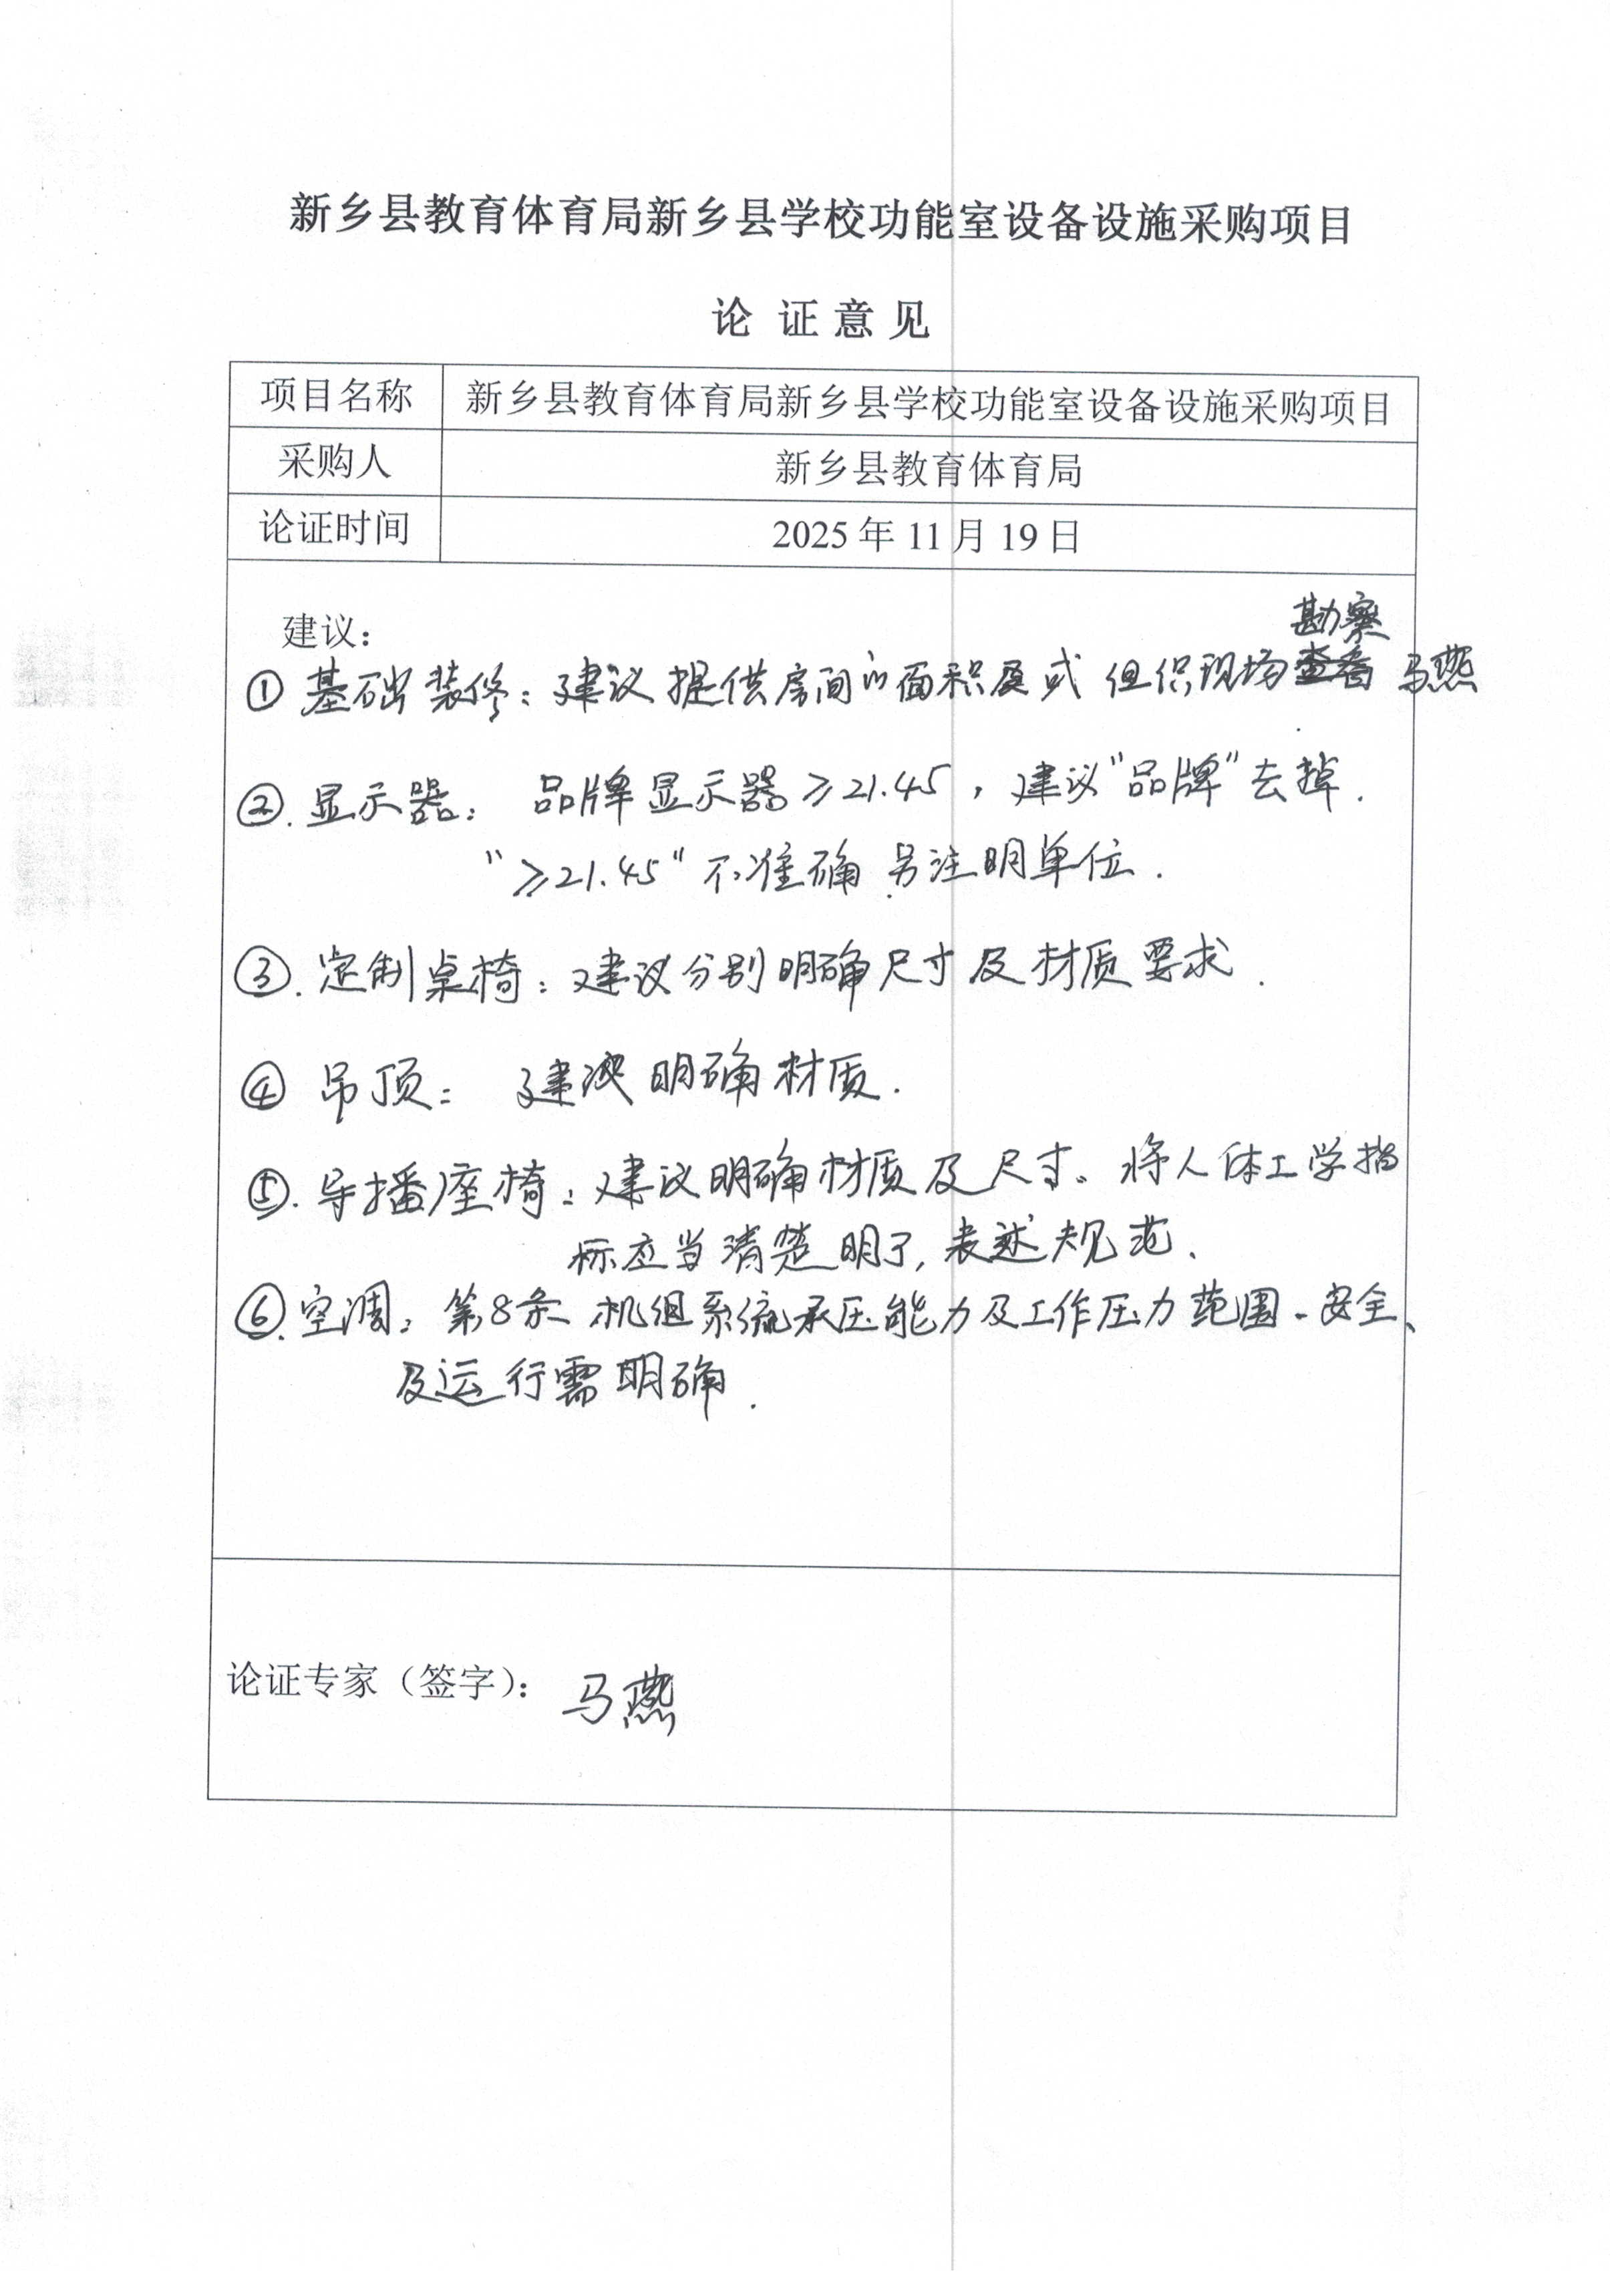 新乡县教育体育局新乡县学校功能室设备设施采购项目
论 证 意 见
项目名称 新乡县教育体育局新乡县学校功能室设备设施采购项目
采购人 新乡县教育体育局
论证时间 2025 年 11 月 19 日
建议:
勘察
① 基础装修:建议提供房间的面积及或组织现场查看 马燕
②. 显示器: 品牌显示器≥21.45,建议"品牌"去掉.
"≥21.45"不准确 另注明单位.
③. 定制桌椅:建议分别明确尺寸及材质要求.
④ 吊顶: 建议明确材质.
⑤. 导播座椅:建议明确材质及尺寸。将人体工学指
标应当清楚明了,表述规范、
⑥. 空调:第8条 机组系统承压能力及工作压力范围、安全、
及运行需明确.
论证专家(签字): 马燕